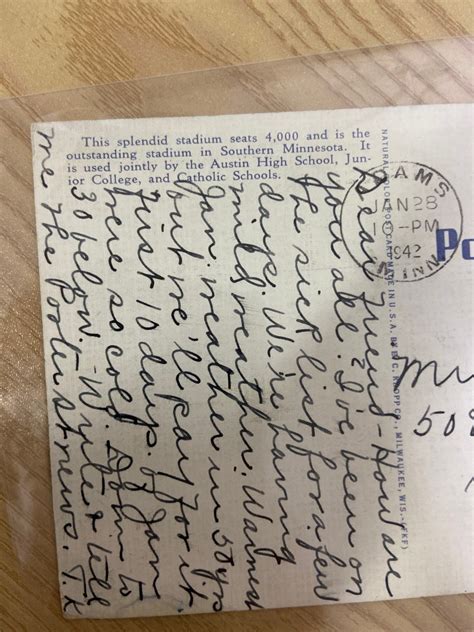 This splendid stadium seats 4,000 and is the
outstanding stadium in Southern Minnesota. It
is used jointly by the Austin High School, Jun-
ior College, and Catholic Schools.
Dear Friend - How are
you all? I've been on
the sick list for a few
days. We're having
mild weather. Warmest
Jan. weather in 50 yrs
but we'll pay for it
First 10 days of Jan
here so cold. Down to
30 below. - Write & tell
me the Footer st news. T.K
NATURAL COLOR POST CARD MADE IN U.S.A. BY E. C. KROPP CO., MILWAUKEE, WIS. (EKF)
ADAMS
JAN 28
1 -PM
1942
MINN
Po
50